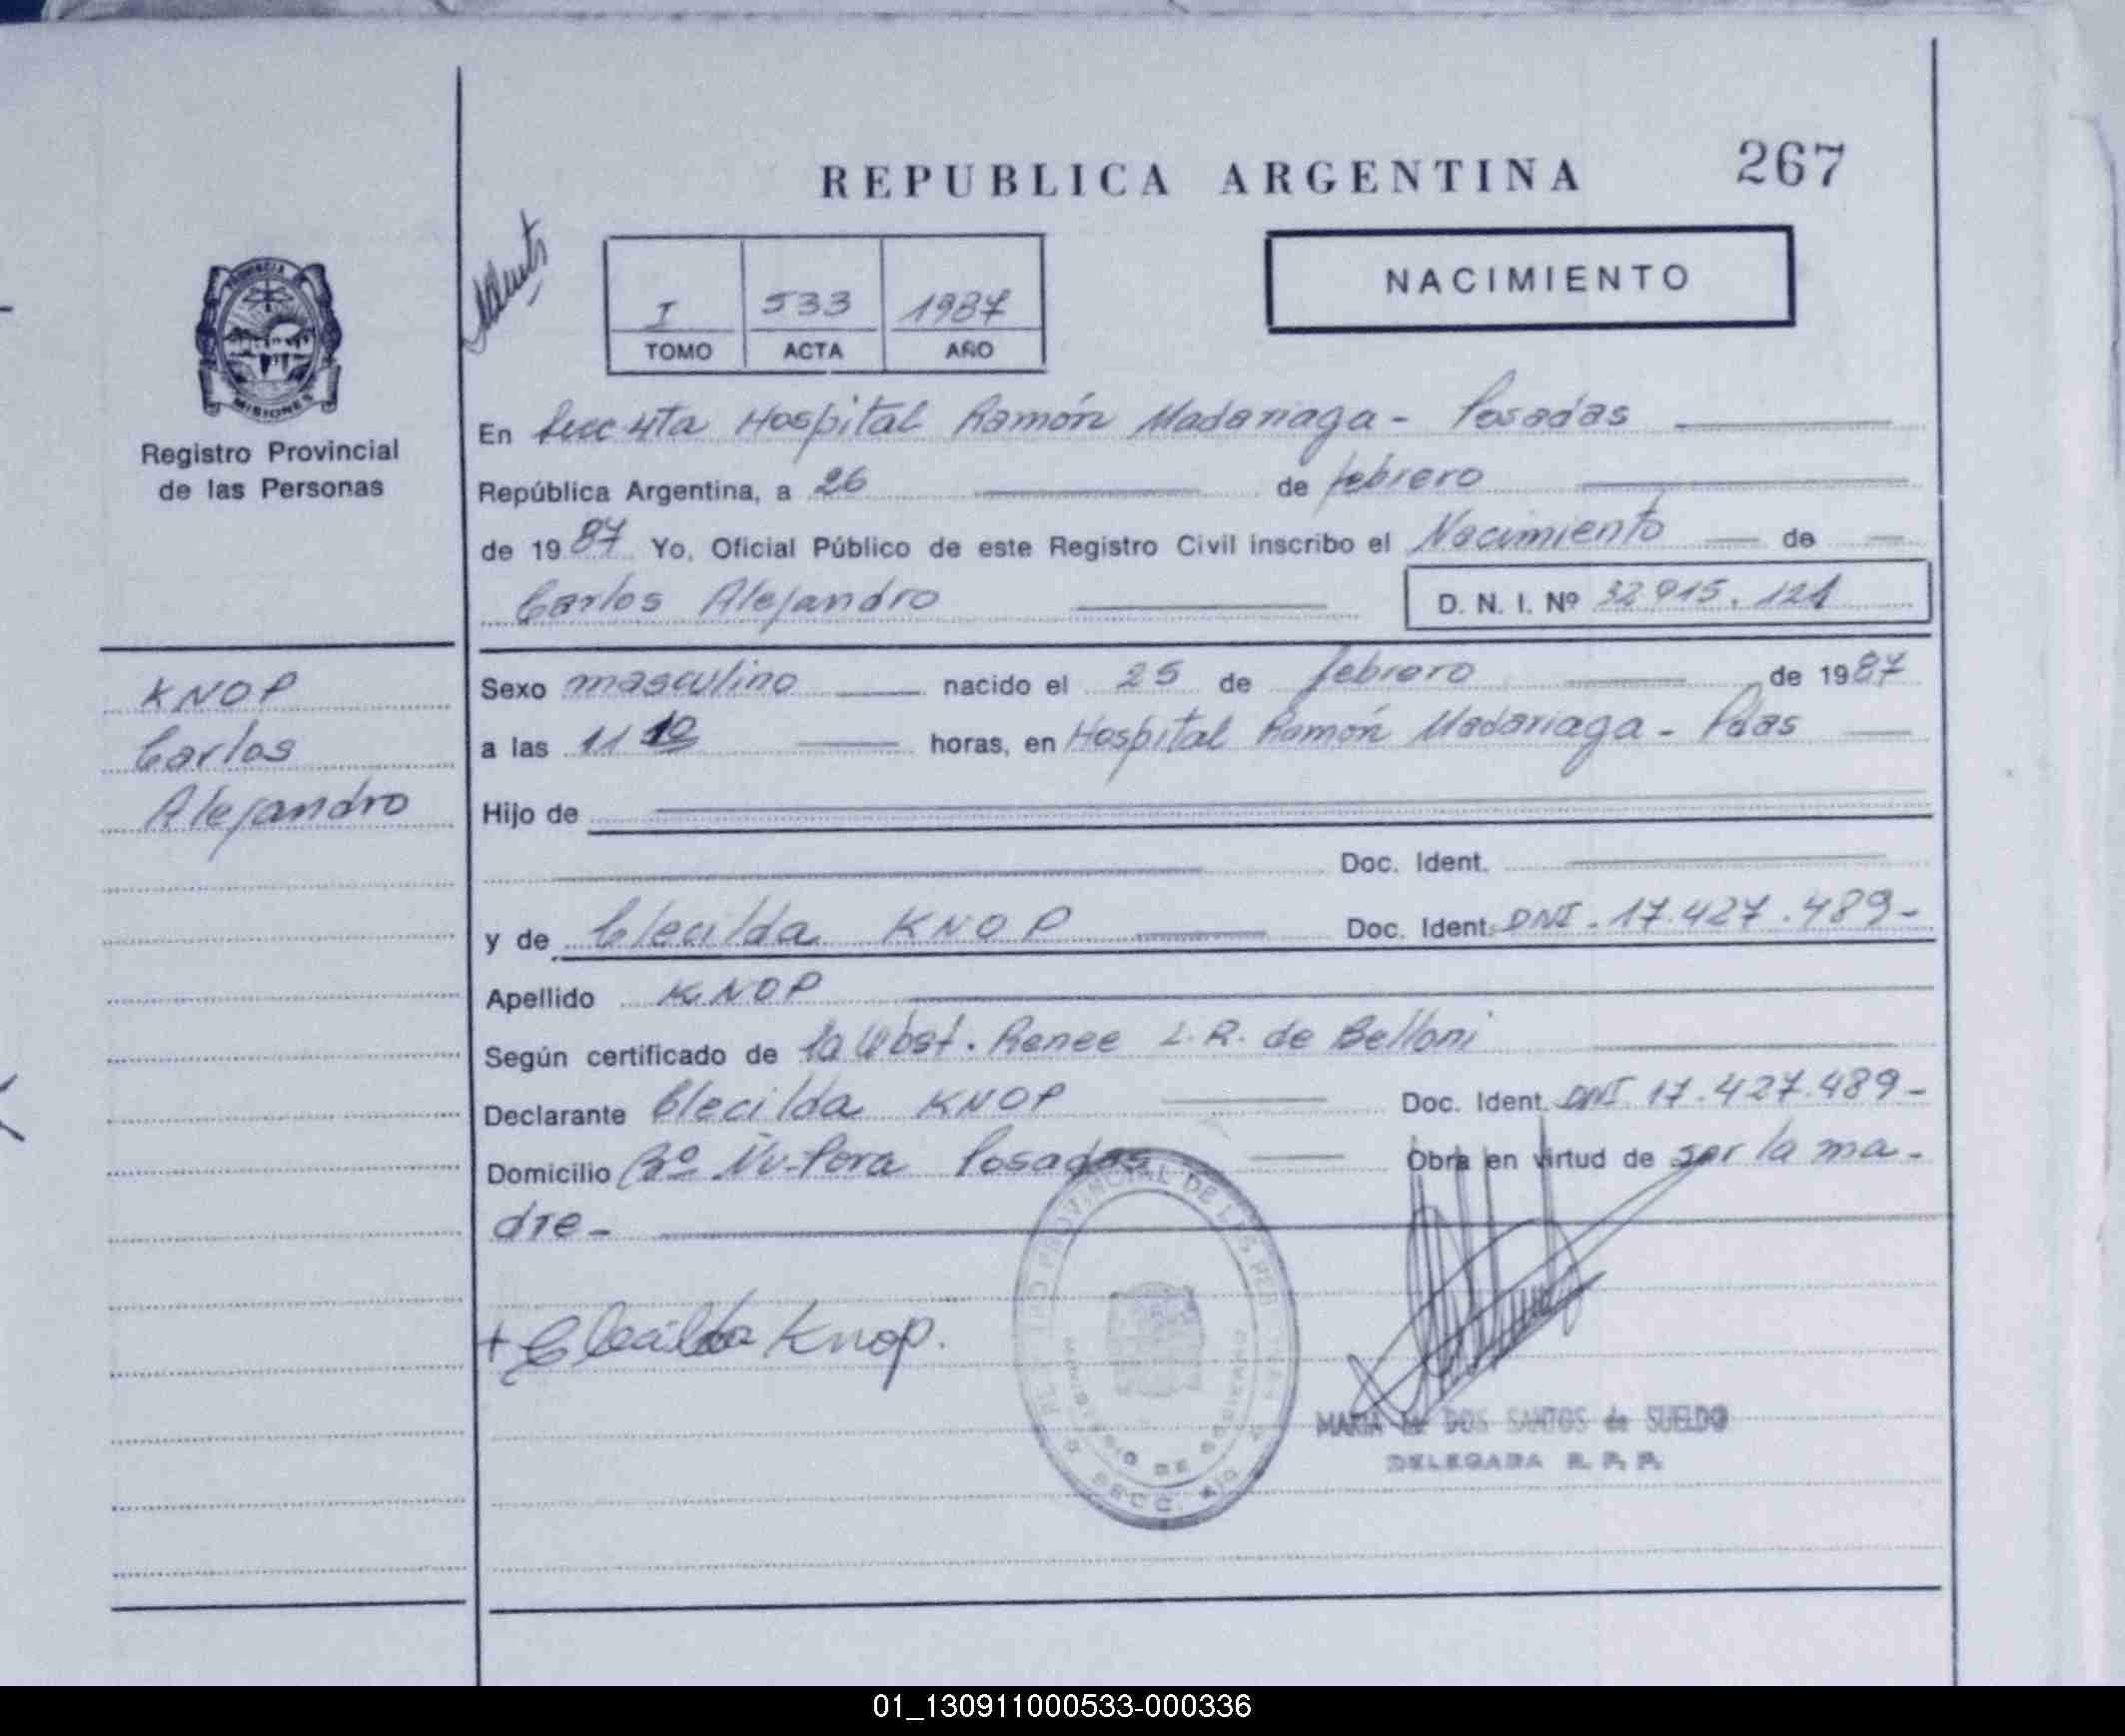 REPUBLICA ARGENTINA 267
PROVINCIA
MISIONES
Registro Provincial
de las Personas
I 533 1987
TOMO ACTA AÑO
NACIMIENTO
En Secc 4ta Hospital Ramón Madariaga - Posadas
República Argentina, a 26 de febrero
de 1987 Yo, Oficial Público de este Registro Civil inscribo el Nacimiento de
Carlos Alejandro D. N. I. Nº 32.915.121
KNOP
Carlos
Alejandro
Sexo masculino nacido el 25 de febrero de 1987
a las 11 10 horas, en Hospital Ramón Madariaga - Pdas
Hijo de
Doc. Ident.
y de Clecilda KNOP Doc. Ident. DNI - 17.427.489-
Apellido KNOP
Según certificado de la Obst. Renee L. R. de Belloni
Declarante Clecilda KNOP Doc. Ident. DNI 17.427.489-
Domicilio Bº Ñu-Pora Posadas Obra en virtud de ser la ma-
dre-
+ Clecilda Knop.
MARIA DOS SANTOS de SUELDO
DELEGADA R. P. P.
01_130911000533-000336